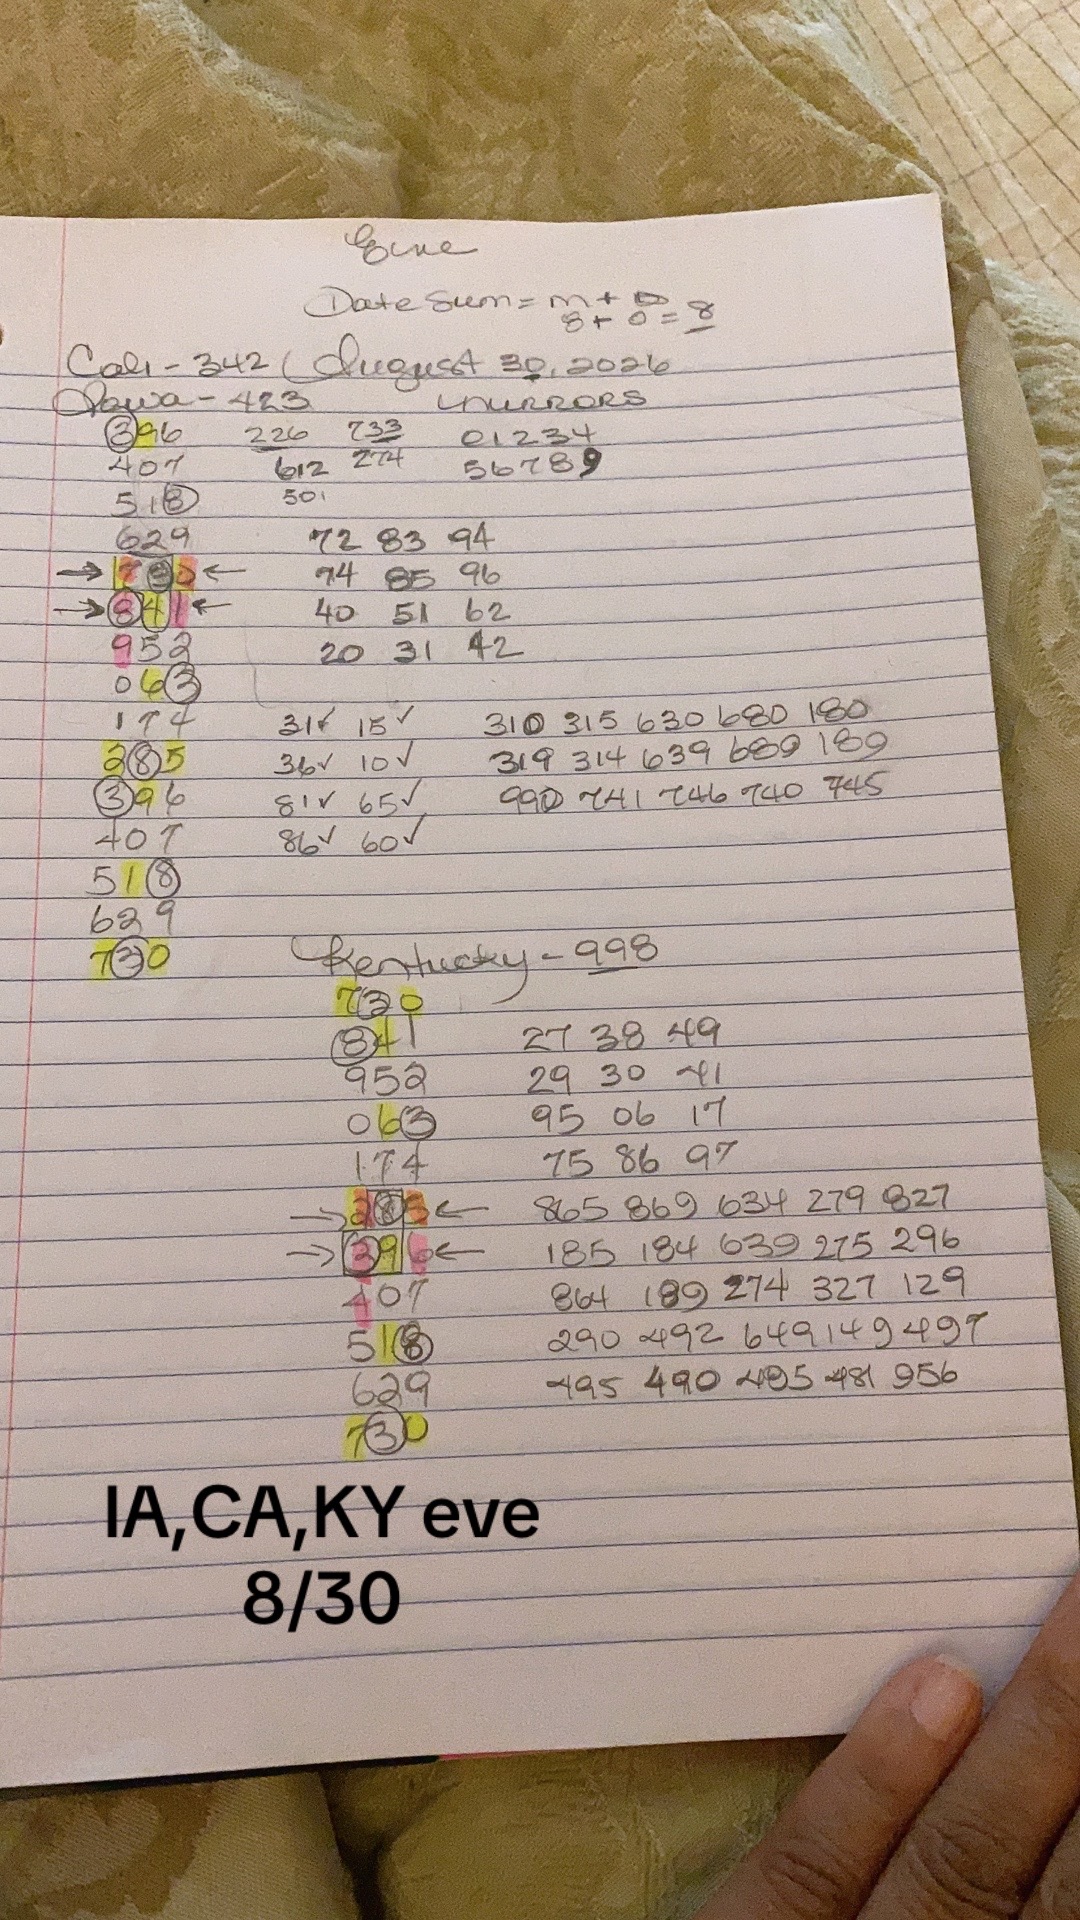 Eve
Date Sum = m + D
8 + 0 = 8
Cali - 342 (August 30, 2026
Iowa - 423 mirrors
396 226 733 01234
407 612 274 56789
518 501
629 72 83 94
→ 730 ← 74 85 96
→ 841 ← 40 51 62
952 20 31 42
063
174 31✓ 15✓ 310 315 630 680 180
285 36✓ 10✓ 319 314 639 689 189
396 81✓ 65✓ 990 741 746 740 745
407 86✓ 60✓
518
629
730 Kentucky - 998
730
841 27 38 49
952 29 30 41
063 95 06 17
174 75 86 97
→ 285 ← 865 869 634 279 827
→ 396 ← 185 184 639 275 296
407 864 189 274 327 129
518 290 492 649 149 497
629 495 490 485 481 956
730
IA,CA,KY eve
8/30